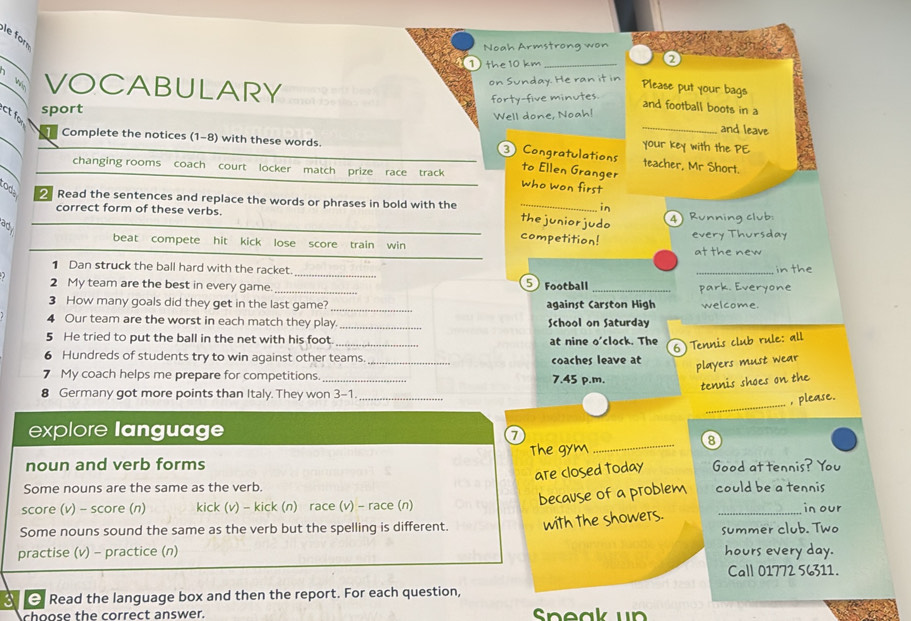 ple form
h
win
ect form
today
ady
?
?
VOCABULARY
sport
1 Complete the notices (1–8) with these words.
changing rooms coach court locker match prize race track
2 Read the sentences and replace the words or phrases in bold with the
correct form of these verbs.
beat compete hit kick lose score train win
1 Dan struck the ball hard with the racket.
2 My team are the best in every game.
3 How many goals did they get in the last game?
4 Our team are the worst in each match they play.
5 He tried to put the ball in the net with his foot.
6 Hundreds of students try to win against other teams.
7 My coach helps me prepare for competitions.
8 Germany got more points than Italy. They won 3–1.
explore language
noun and verb forms
Some nouns are the same as the verb.
score (v) – score (n) kick (v) – kick (n) race (v) – race (n)
Some nouns sound the same as the verb but the spelling is different.
practise (v) – practice (n)
3 e Read the language box and then the report. For each question,
choose the correct answer.
1
Noah Armstrong won
the 10 km
on Sunday. He ran it in
forty-five minutes.
Well done, Noah!
2
Please put your bags
and football boots in a
and leave
your key with the PE
teacher, Mr Short.
3 Congratulations
to Ellen Granger
who won first
in
the junior judo
competition!
4 Running club:
every Thursday
at the new
in the
park. Everyone
welcome.
5 Football
against Carston High
School on Saturday
at nine o'clock. The
coaches leave at
7.45 p.m.
6 Tennis club rule: all
players must wear
tennis shoes on the
, please.
7
The gym
are closed today
because of a problem
with the showers.
8
Good at tennis? You
could be a tennis
in our
summer club. Two
hours every day.
Call 01772 56311.
Speak up